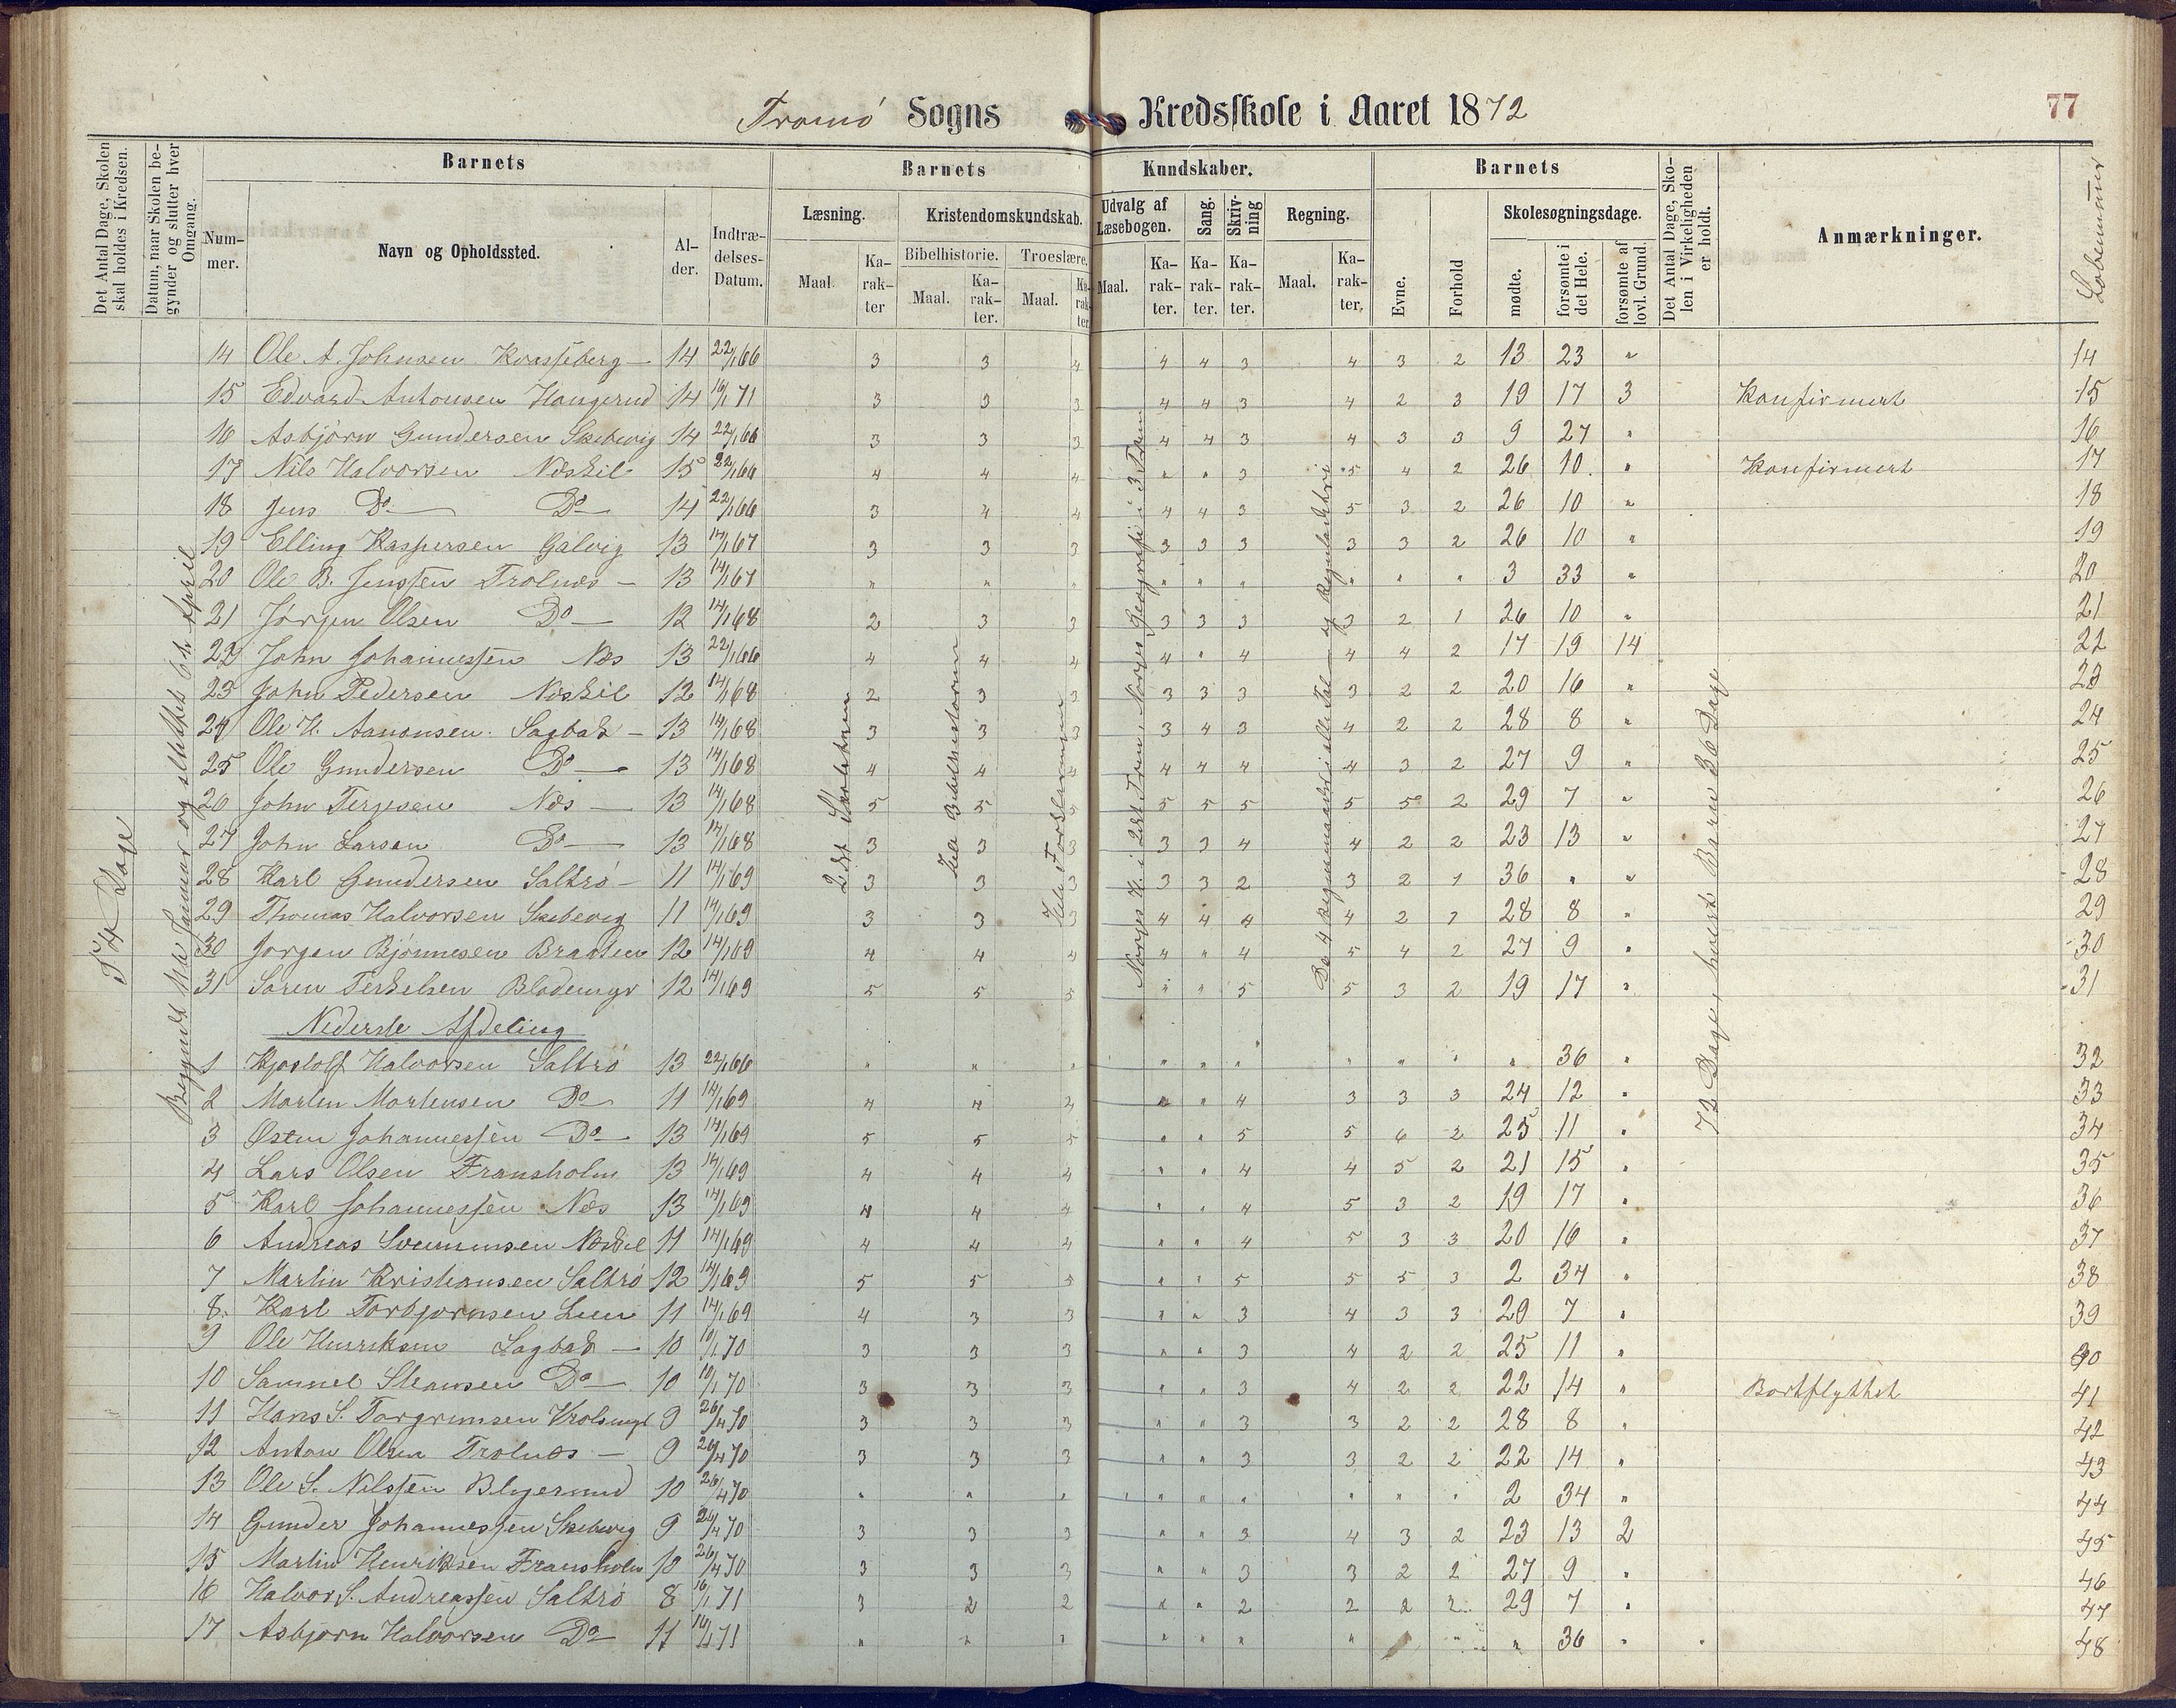 Tromø Sogns Kredsskole i Aaret 1872
77
Det Antal Dage, Skolen skal holdes i Kredsen.
Datum, naar Skolen begynder og slutter hver Omgang.
Barnets
Nummer.
Navn og Opholdssted.
Alder.
Indtrædelses-Datum.
Barnets Kundskaber.
Læsning.
Maal.
Karakter
Kristendomskundskab.
Bibelhistorie.
Maal.
Karakter.
Troeslære.
Maal.
Karakter.
Udvalg af Læsebogen.
Maal.
Karakter.
Sang.
Karakter.
Skrivning
Karakter.
Regning.
Maal.
Karakter.
Barnets
Evne.
Forhold
Skolesøgningsdage.
mødte.
forsømte i det Hele.
forsømte af lovl. Grund.
Det Antal Dage, Skolen i Virkeligheden er holdt.
Anmærkninger.
Løbenummer
14 Ole A. Johnsen Kvasseberg — 14 22/1 66 3 3 4 4 4 3 4 3 2 13 23 " 14
15 Edvard Antonsen Haugerud 14 16/1 71 3 3 3 4 4 3 4 2 3 19 17 3 Konfirmert 15
16 Asbjørn Gundersen Skebevig 14 22/1 66 3 3 3 4 4 3 4 3 3 9 27 " 16
17 Nils Halvorsen Næskil 15 22/1 66 4 4 4 " " 3 5 4 2 26 10 " Konfirmert 17
18 Jens Do Do 14 22/1 66 3 4 4 4 4 3 5 3 2 26 10 " 18
19 Elling Kaspersen Galvig 13 14/1 67 3 3 3 3 3 3 3 3 2 26 10 " 19
20 Ole B. Jenssen Trolnæs — 13 14/1 67 " " " " " " " " " 3 33 " 20
21 Jørgen Olsen Do 12 14/1 68 2 3 3 3 3 3 3 2 1 26 10 " 21
22 John Johannessen Næs 13 22/1 66 4 4 4 4 " 4 4 4 2 17 19 14 22
23 John Pedersen Næskil 12 14/1 68 2 3 3 3 3 3 3 2 2 20 16 " 23
24 Ole H. Aanonsen Sagbak — 13 14/1 68 3 3 3 3 4 3 4 2 2 28 8 " 24
25 Ole Gundersen Do 13 14/1 68 4 4 4 4 4 4 4 3 2 27 9 " 25
26 John Terjesen Næs — 13 14/1 68 5 5 5 5 5 5 5 5 2 29 7 " 26
27 John Larsen Do 13 14/1 68 3 3 3 3 3 4 4 2 2 23 13 " 27
28 Karl Gundersen Saltrø — 11 14/1 69 3 3 3 3 3 2 3 2 1 36 " " 28
29 Thomas Halvorsen Skebevig 11 14/1 69 3 3 3 4 4 4 4 2 1 28 8 " 29
30 Jørgen Bjønnesen Braaten 12 14/1 69 4 4 4 4 " 4 5 4 2 27 9 " 30
31 Søren Terkelsen Blødemyr 12 14/1 69 5 5 5 " " 5 5 3 2 19 17 " 31
Nederste Afdeling
1 Kjøstolf Halvorsen Saltrø 13 22/1 66 " " " " " " " " " " 36 " 32
2 Morten Mortensen Do 11 14/1 69 4 4 4 " " 4 3 3 3 24 12 " 33
3 Østen Johannessen Do 13 14/1 69 5 5 5 " " 5 5 6 2 25 11 " 34
4 Lars Olsen Fransholm 13 14/1 69 4 4 4 " " 4 4 5 2 21 15 " 35
5 Karl Johannessen Næs 13 14/1 69 4 4 4 " " 4 5 3 2 19 17 " 36
6 Andreas Sveinunsen Næskil 11 14/1 69 4 4 4 " " 4 5 3 3 20 16 " 37
7 Martin Kristiansen Saltrø 12 14/1 69 5 5 5 " " 5 5 5 3 2 34 " 38
8 Karl Torbjørnsen Lien 11 14/1 69 4 3 3 " " 3 4 3 3 29 7 " 39
9 Ole Henriksen Sagbak — 10 10/1 70 3 3 3 " " 3 4 2 2 25 11 " 40
10 Samuel Steansen Do 10 10/1 70 3 3 3 " " 3 4 2 2 22 14 " Bortflyttet 41
11 Hans S. Torgrimsen 9 26/4 70 3 3 3 " " 3 3 2 2 28 8 " 42
12 Anton Olsen Trolnæs — 9 26/4 70 3 3 3 " " 3 3 2 2 22 14 " 43
13 Ole S. Nilssen 10 26/4 70 " " " " " " " " " 2 34 " 44
14 Gunder Johannessen Skebevig 9 26/4 70 3 3 3 " " 3 4 3 2 23 13 2 45
15 Martin Henriksen Fransholm 10 26/4 70 3 3 3 " " 3 3 2 2 27 9 " 46
16 Halvor S. Andreassen Saltrø 8 16/1 71 3 2 2 " " 2 2 2 2 29 7 " 47
17 Asbjørn Halvorsen Do 11 16/1 71 " " " " " " " " " 36 " 48
54 Dage
Begyndt Januar og sluttet 6te April
2det Skoletrin
Hele Bibelhistorien
Hele Forklaringen
Norges H. i 2det Trin, Norges Geografi i 3 Trin
De 4 Regningsmaader i hele Tal og Reguladetri
72 Dage, hvert Barn 36 Dage